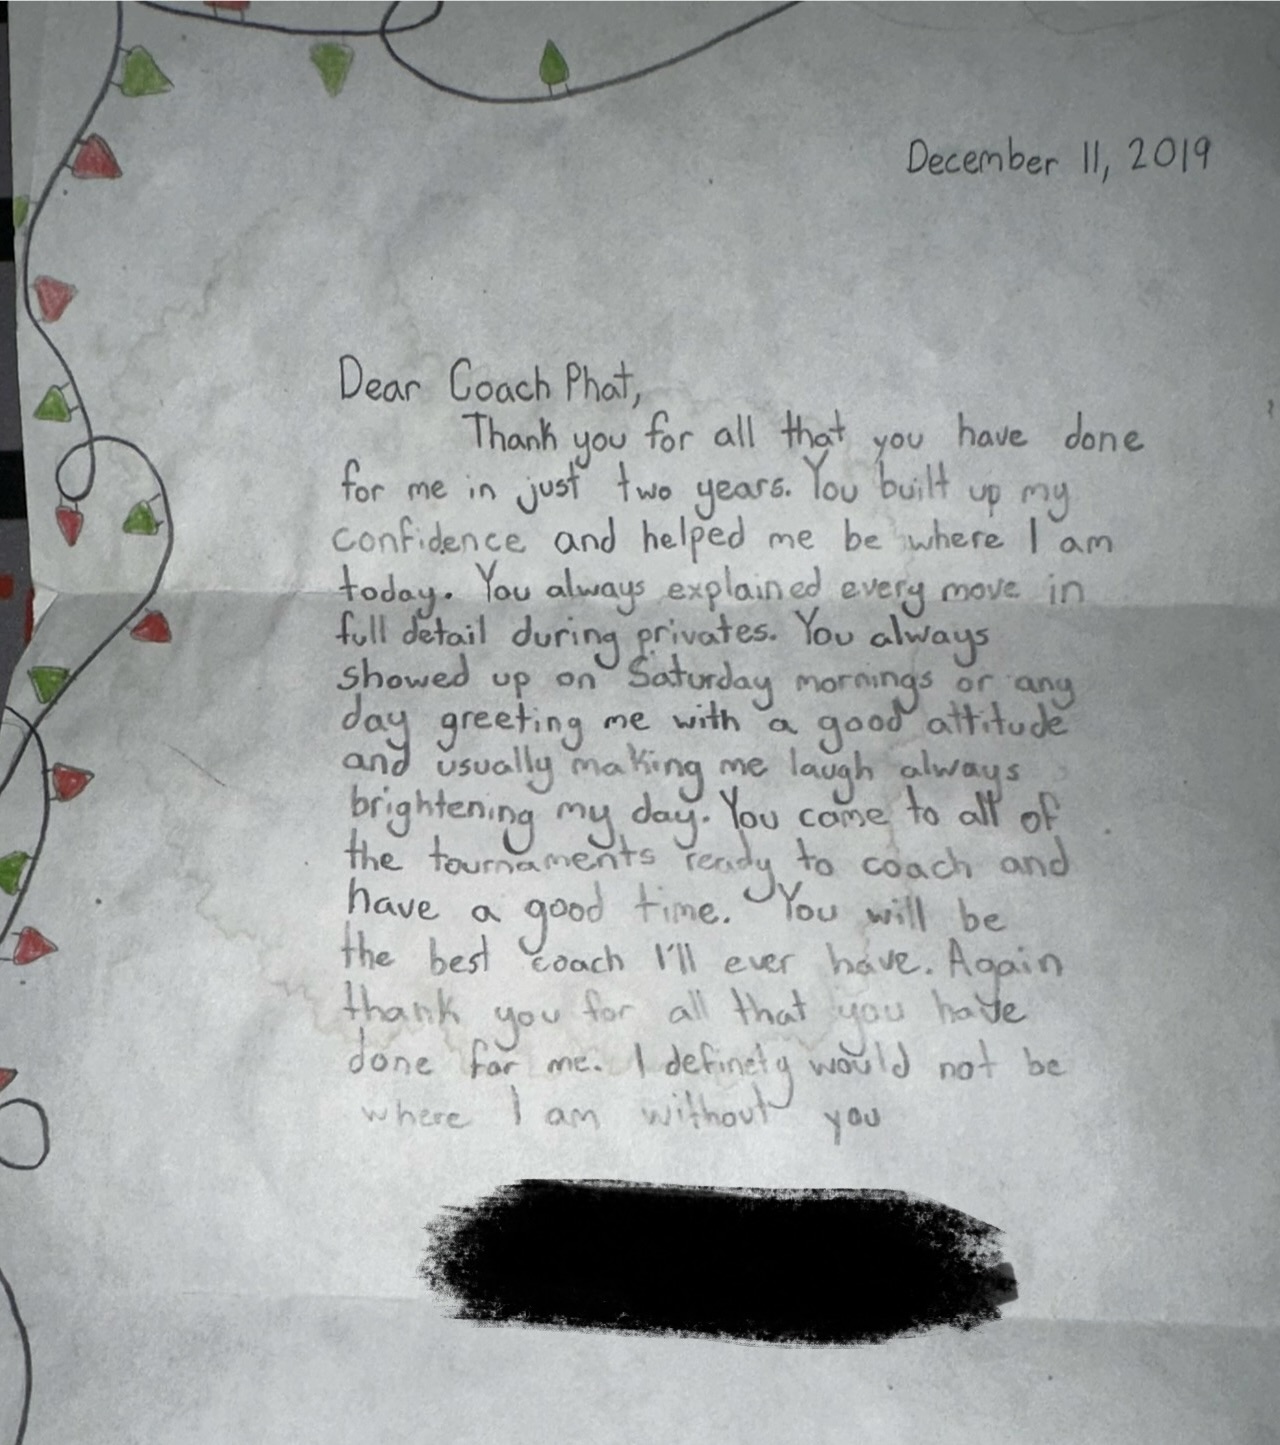 December 11, 2019
Dear Coach Phat,
Thank you for all that you have done
for me in just two years. You built up my
confidence and helped me be where I am
today. You always explained every move in
full detail during privates. You always
showed up on Saturday mornings or any
day greeting me with a good attitude
and usually making me laugh always
brightening my day. You came to all of
the tournaments ready to coach and
have a good time. You will be
the best coach I'll ever have. Again
thank you for all that you have
done for me. I definety would not be
where I am without you